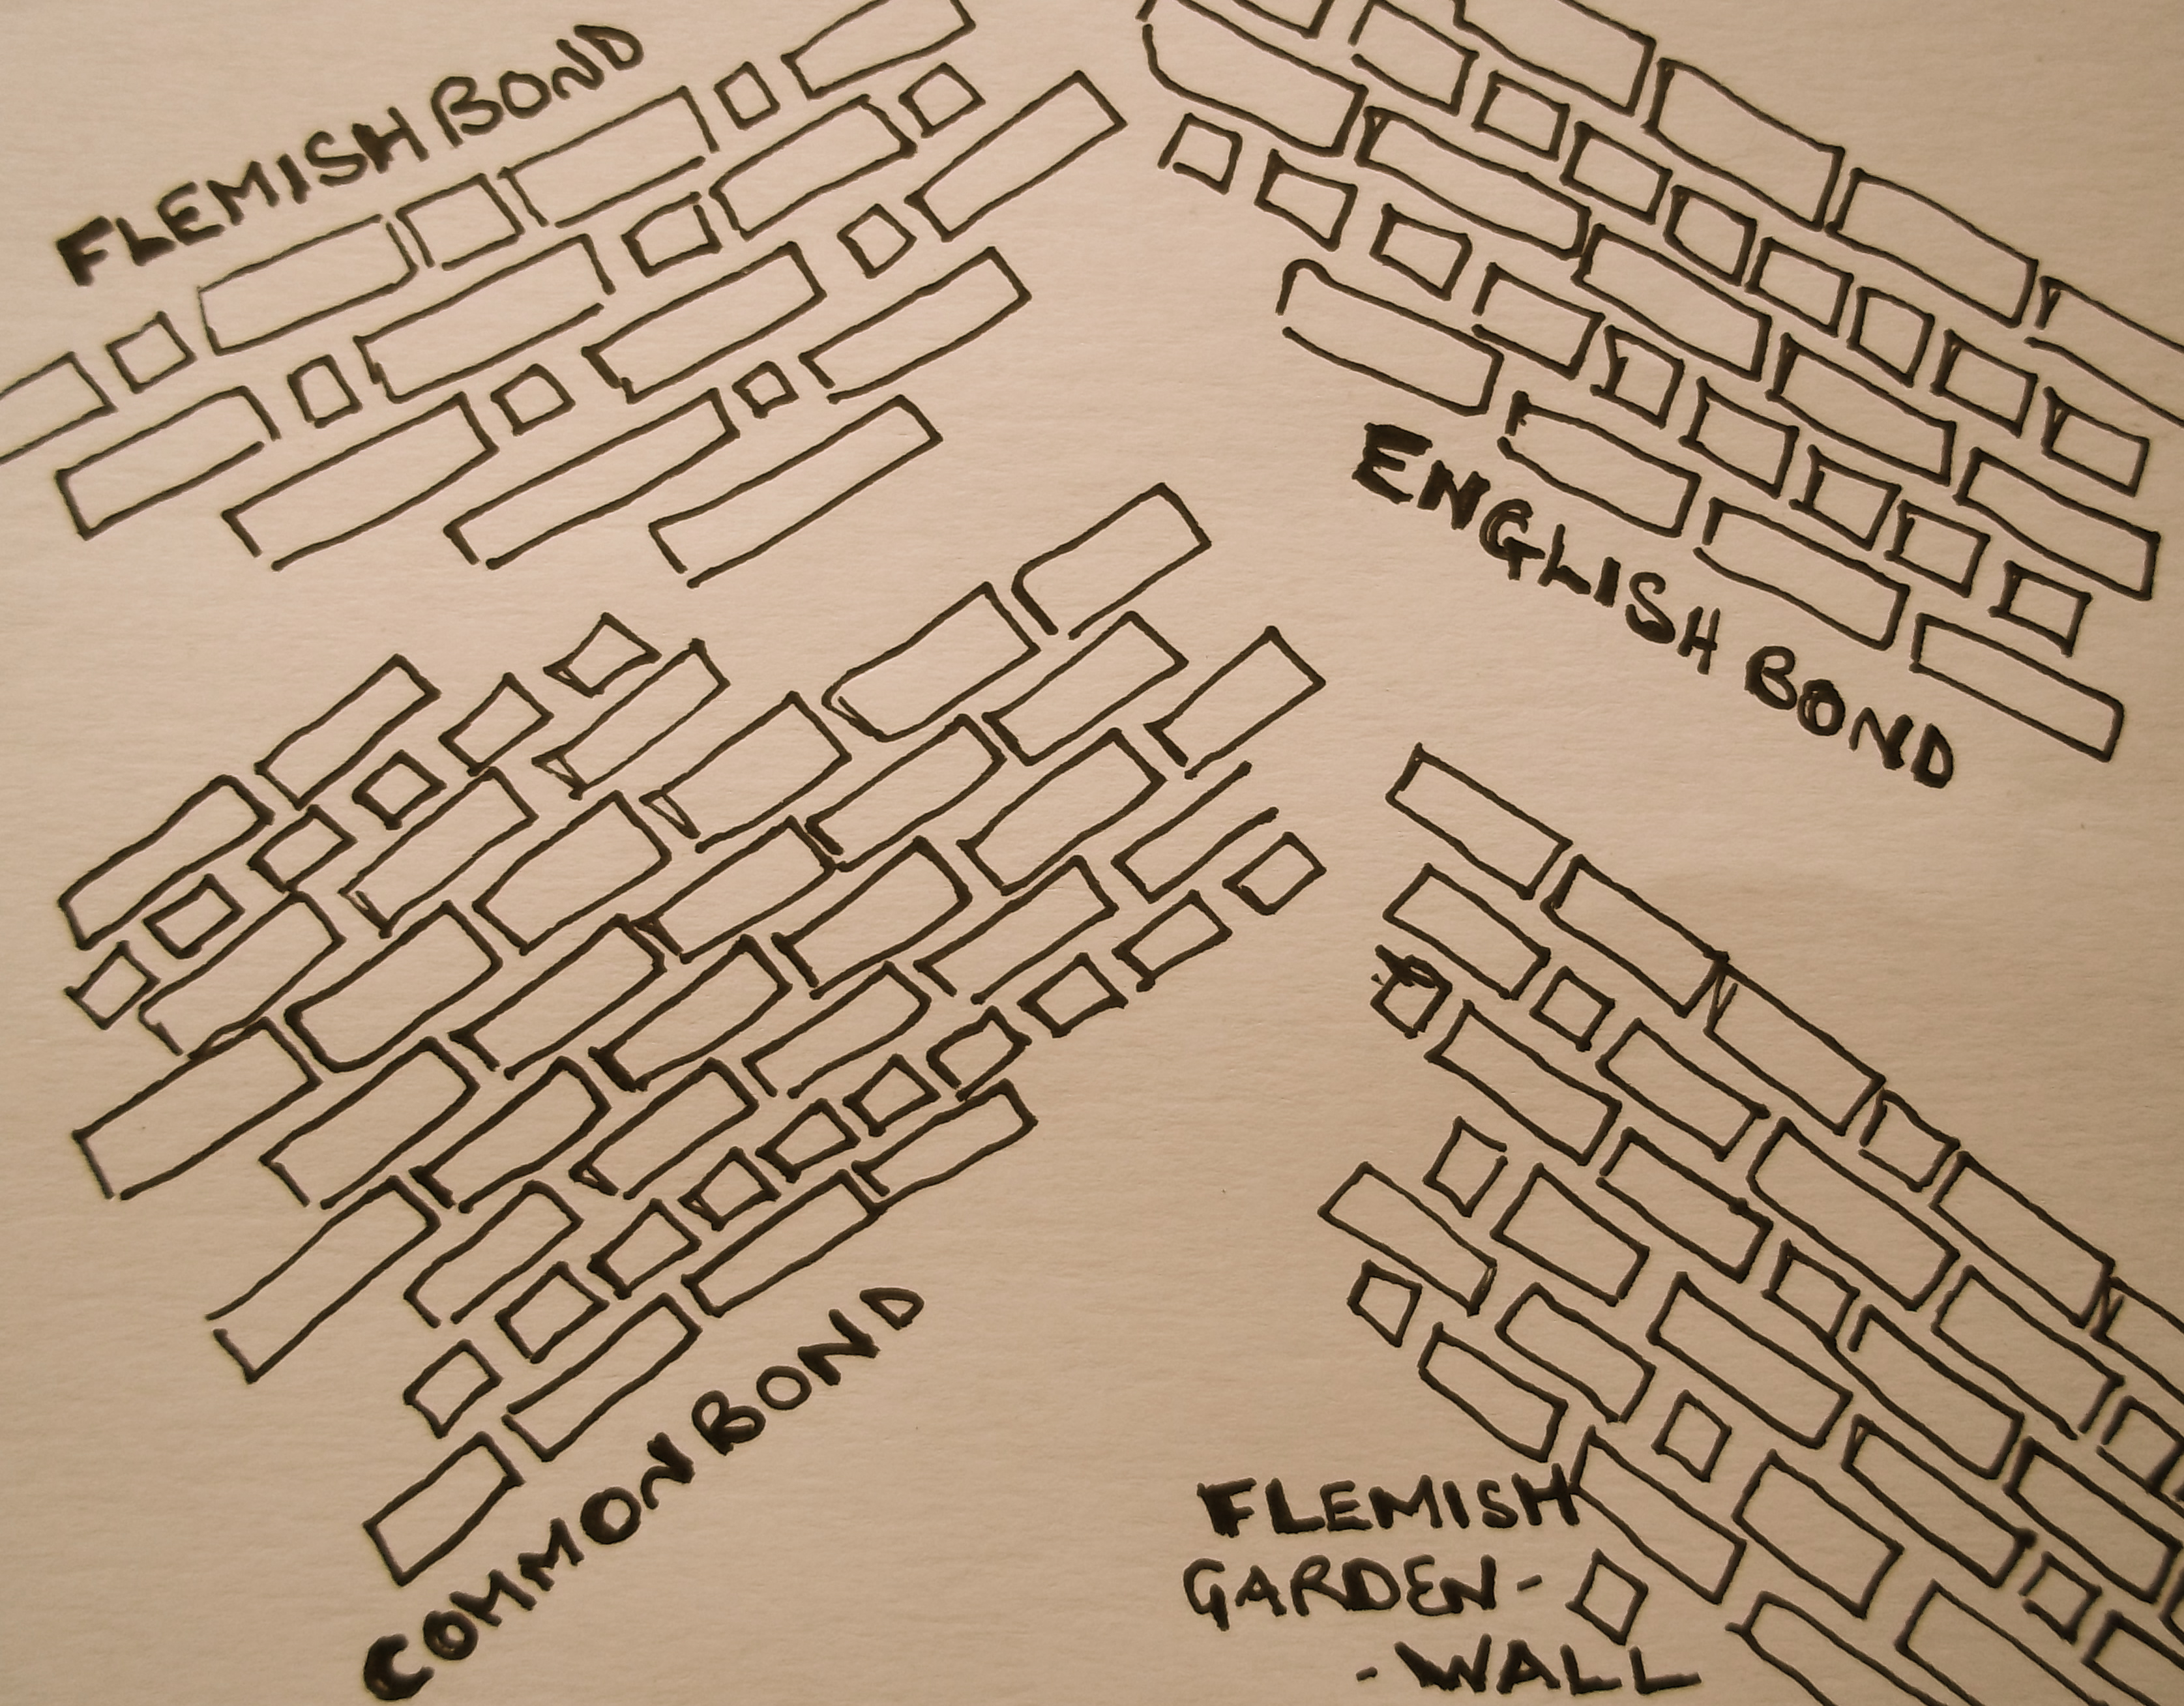 FLEMISH BOND
ENGLISH BOND
COMMON BOND
FLEMISH
GARDEN-
-WALL